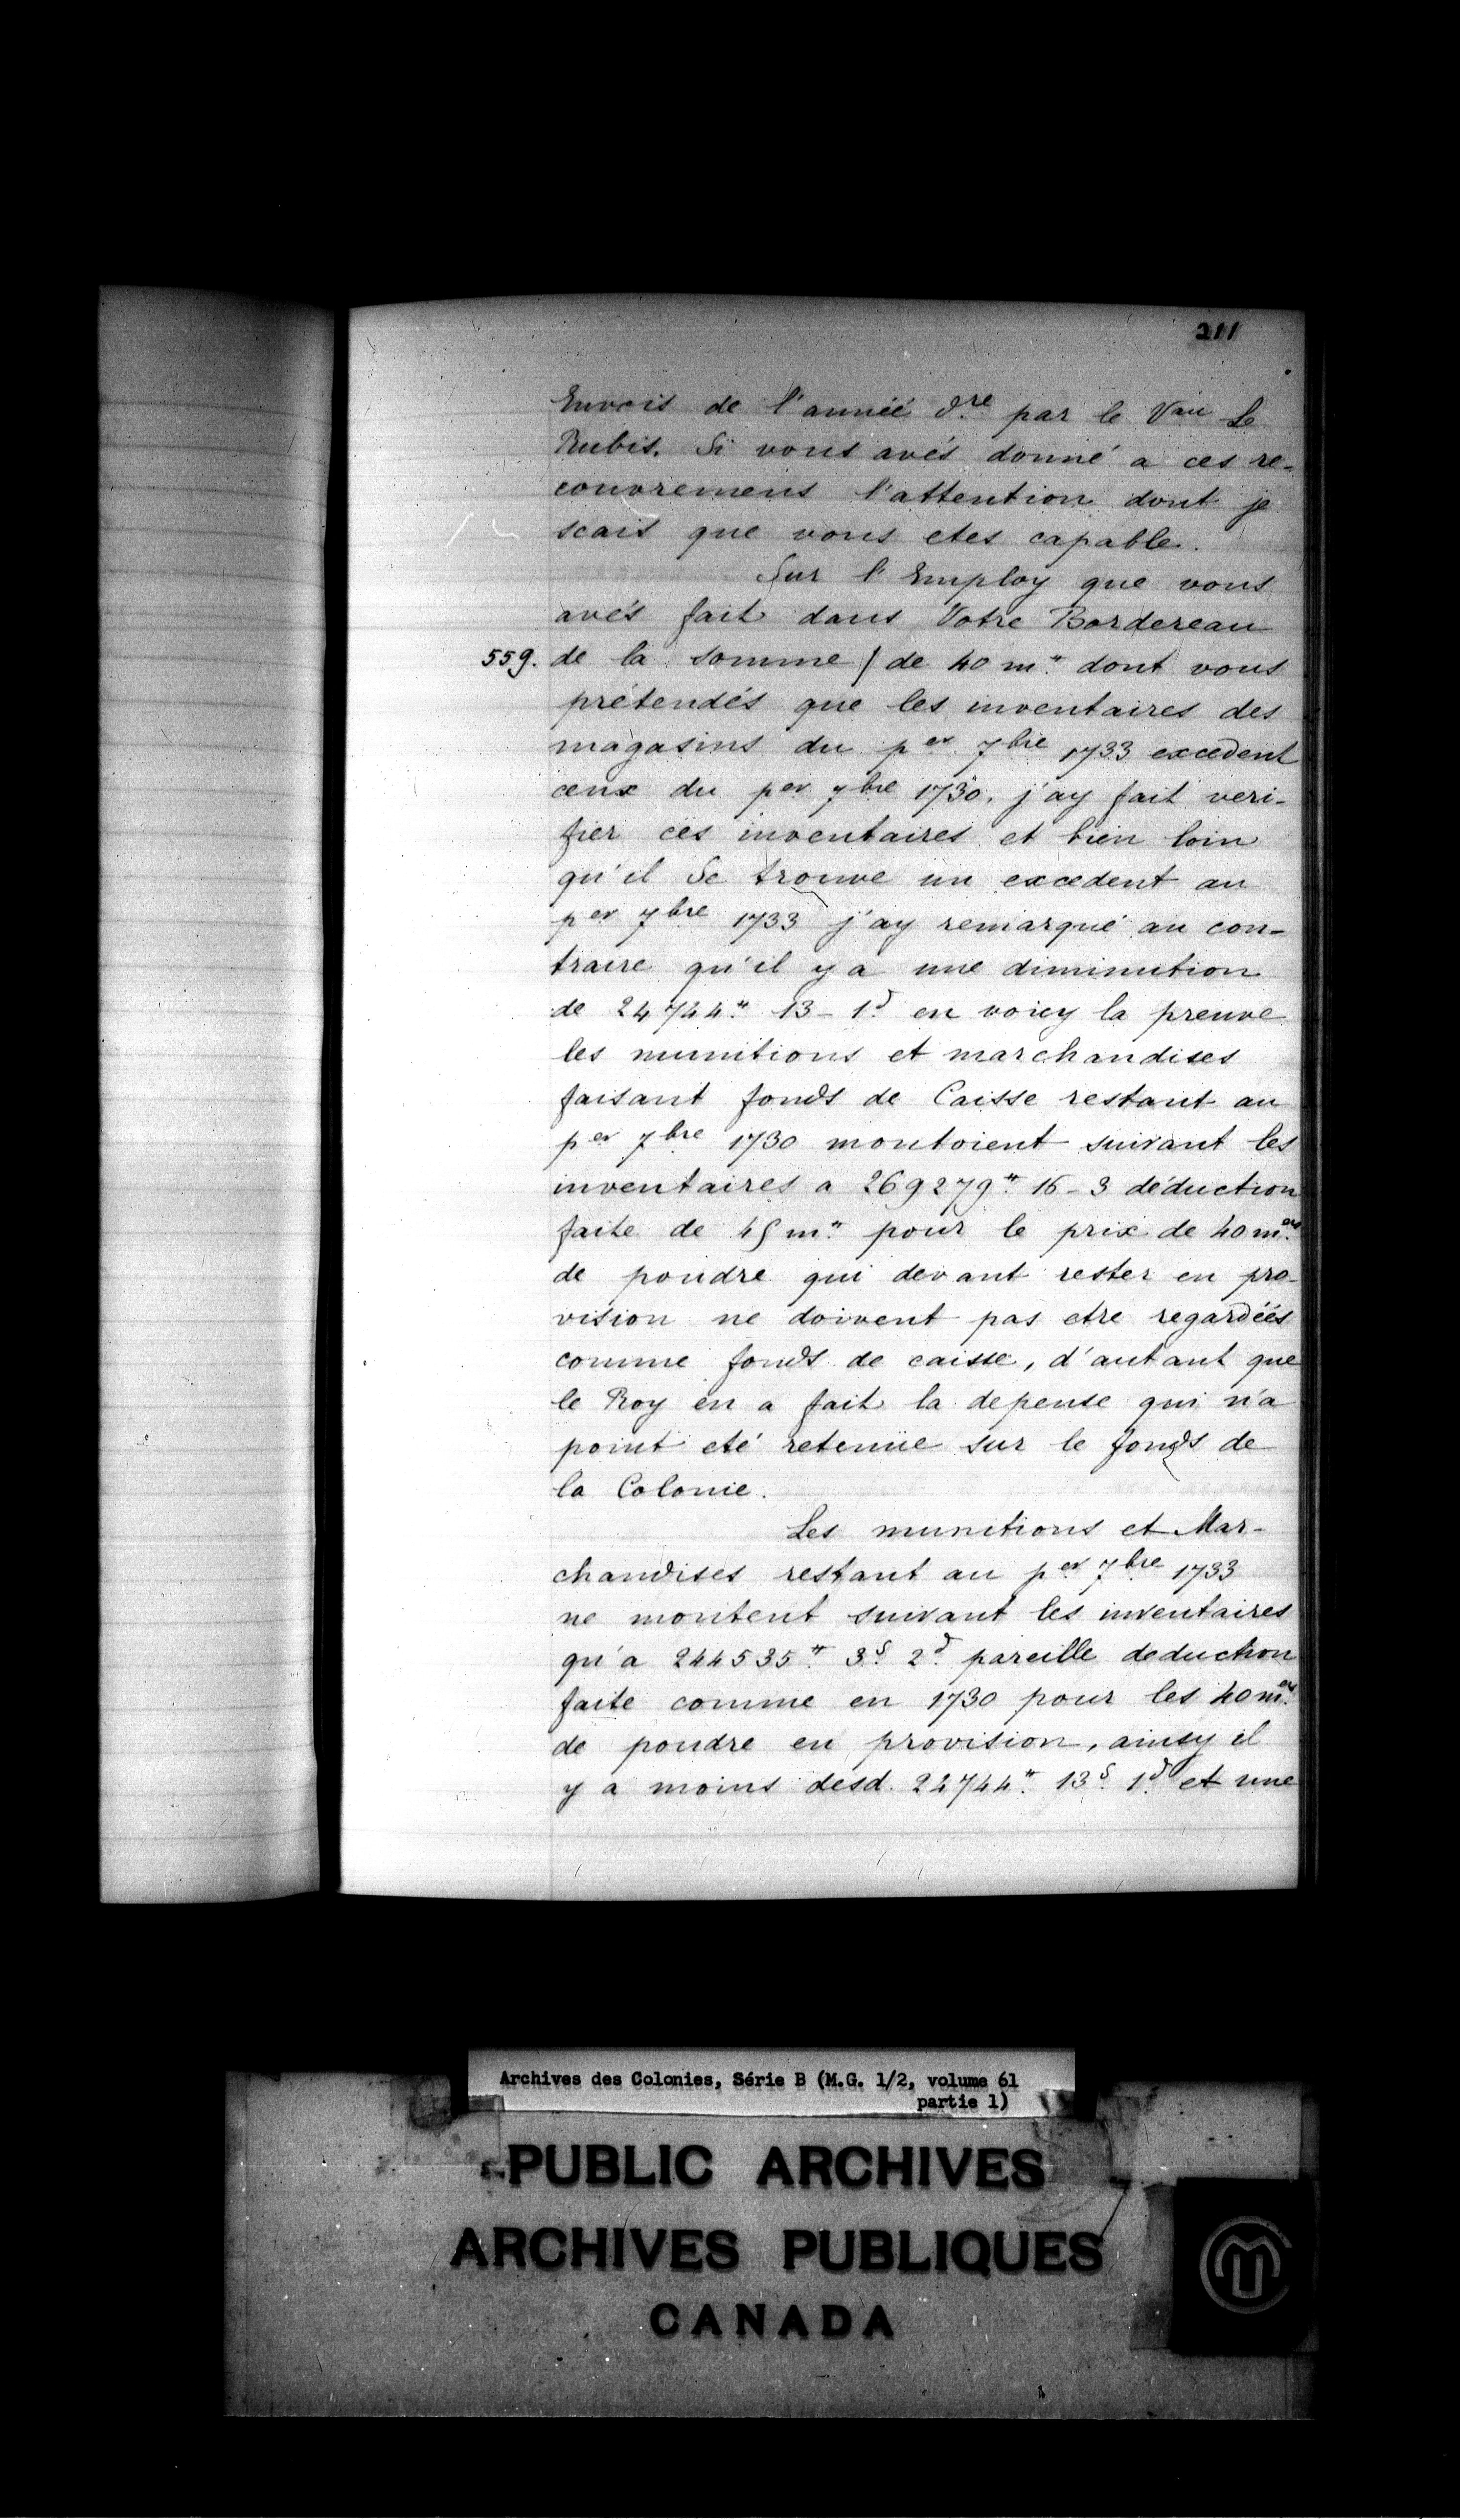 211
Envois de l'année d.re par le Vau Le
Rubis. Si vous avés donné a ces re-
couvremens l'attention dont je
scais que vous etes capable.
Sur l'Employ que vous
avés fait dans Votre Bordereau
559. de la somme / de 40 m.# dont vous
prétendés que les inventaires des
magasins du per 7bre 1733 excedent
ceux du per 7bre 1730, j'ay fait veri-
fier ces inventaires et bien loin
qu'il se trouve un excedent au
per 7bre 1733 j'ay remarqué au con-
traire qu'il y a une diminution
de 24744.# 13 - 1.d en voicy la preuve
les munitions et marchandises
faisant fonds de Caisse restant au
per 7bre 1730 montoient suivant les
inventaires a 269279.# 16 - 3 déduction
faite de 45 m.# pour le prix de 40 m.
de poudre qui devant rester en pro-
vision ne doivent pas etre regardéés
comme fonds de caisse, d'autant que
le Roy en a fait la depense qui n'a
point eté retenüe sur le fonds de
la Colonie.
Les munitions et Mar-
chandises restant au per 7bre 1733
ne montent suivant les inventaires
qu'a 244535.# 3.s 2.d pareille deduction
faite comme en 1730 pour les 40 m.
de poudre en provision, ainsy il
y a moins desd. 22744.# 13.s 1.d et une
Archives des Colonies, Série B (M.G. 1/2, volume 61
partie 1)
PUBLIC ARCHIVES
ARCHIVES PUBLIQUES
CANADA